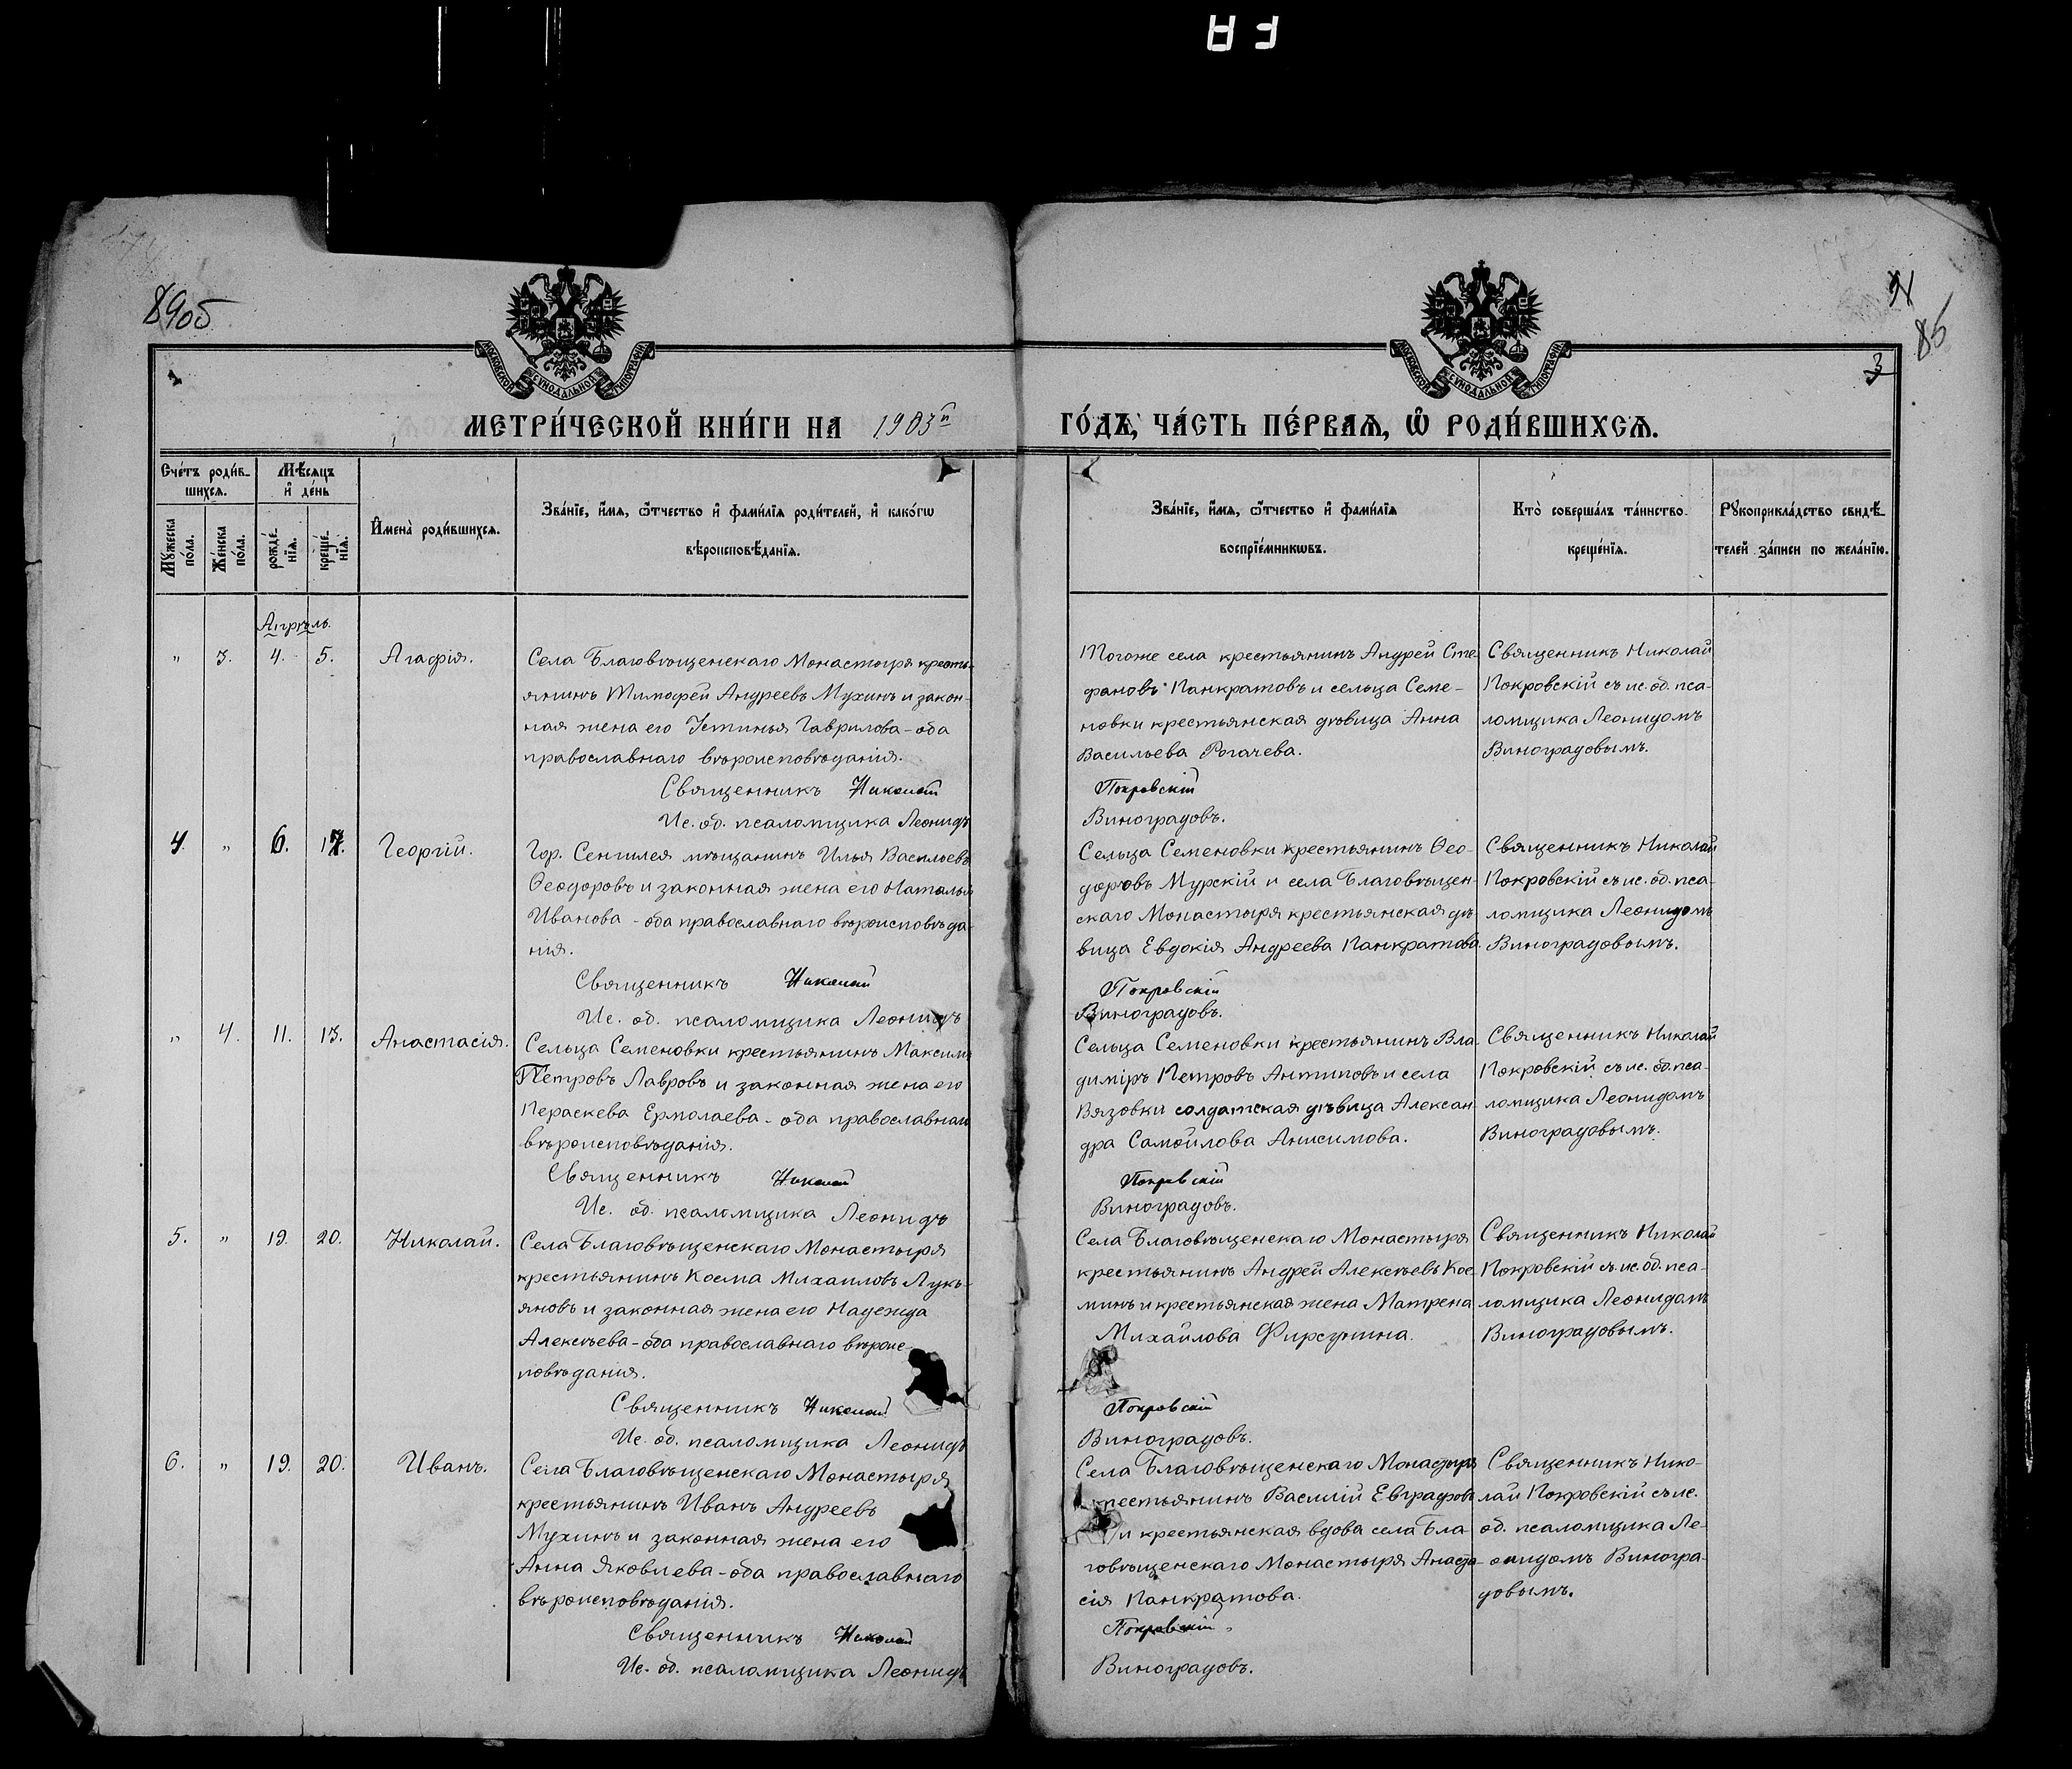 89об
91
85
3
МОСКОВСКОЙ СѴНОДАЛЬНОЙ ТИПОГРАФІИ
МОСКОВСКОЙ СѴНОДАЛЬНОЙ ТИПОГРАФІИ
МЕТРИ́ЧЕСКОЙ КНИ́ГИ НА 1903й
ГО́ДЪ, ЧА́СТЬ ПЕ́РВАѦ, Ѽ РОДИ́ВШИХСѦ.
Сче́тъ роди́в-
шихсѧ.
Мѣ́сѧцъ
и҆ де́нь
Мꙋжеска по́ла.
Же́нска по́ла.
рожде́-
нїѧ.
креще́-
нїѧ.
И҆мена̀ роди́вшихсѧ.
Зва́нїе, и҆́мѧ, ѻ҆́тчество и҆ фами́лїѧ роди́телей, и҆ како́гѡ
вѣроисповѣ́данїѧ.
Зва́нїе, и҆́мѧ, ѻ҆́тчество и҆ фами́лїѧ
воспрїе́мникѡвъ.
Кто̀ соверша́лъ та́инство
креще́нїѧ.
Рꙋкоприкла́дство свидѣ́-
телей за́писи по жела́нїю.
Апрѣль.
" 3. 4. 5. Агафія.
Села Благовѣщенскаго Монастыря кресть-
янинъ Тимофей Андреевъ Мухинъ и закон-
ная жена его Устинья Гаврилова - оба
православнаго вѣроисповѣданія.
Священникъ Николай
Ис. об. псаломщика Леонидъ
Тогоже села крестьянинъ Андрей Сте
фановъ Панкратовъ и сельца Семе-
новки крестьянская дѣвица Анна
Васильева Рогачева.
Покровскій
Виноградовъ.
Священникъ Николай
Покровскій съ ис. об. пса-
ломщика Леонидомъ
Виноградовымъ.
4. " 6. 17. Георгій.
Гор. Сенгилея мѣщанинъ Илья Васильевъ
Ѳеодоровъ и законная жена его Наталья
Иванова - оба православнаго вѣроисповѣда-
нія.
Священникъ Николай
Ис. об. псаломщика Леонидъ
Сельца Семеновки крестьянинъ Ѳео-
доровъ Мурскій и села Благовѣщен-
скаго Монастыря крестьянская дѣ-
вица Евдокія Андреева Панкратова
Покровскій
Виноградовъ.
Священникъ Николай
Покровскій съ ис. об. пса-
ломщика Леонидомъ
Виноградовымъ.
" 4. 11. 13. Анастасія.
Сельца Семеновки крестьянинъ Максимъ
Петровъ Лавровъ и законная жена его
Параскева Ермолаева - оба православнаго
вѣроисповѣданія.
Священникъ Николай
Ис. об. псаломщика Леонидъ
Сельца Семеновки крестьянинъ Вла
диміръ Петровъ Антиповъ и села
Вязовки солдатская дѣвица Алексан
дра Самойлова Анисимова.
Покровскій
Виноградовъ.
Священникъ Николай
Покровскій съ ис. об. пса-
ломщика Леонидомъ
Виноградовымъ.
5. " 19. 20. Николай.
Села Благовѣщенскаго Монастыря
крестьянинъ Косма Михаиловъ Лукь-
яновъ и законная жена его Надежда
Алексѣева - оба православнаго вѣроис-
повѣданія.
Священникъ Николай
Ис. об. псаломщика Леонидъ
Села Благовѣщенскаго Монастыря
крестьянинъ Андрей Алексѣевъ Кос
минъ и крестьянская жена Матрена
Михайлова Фирсунина.
Покровскій
Виноградовъ.
Священникъ Николай
Покровскій съ ис. об. пса-
ломщика Леонидомъ
Виноградовымъ.
6. " 19. 20. Иванъ.
Села Благовѣщенскаго Монастыря
крестьянинъ Иванъ Андреевъ
Мухинъ и законная жена его
Анна Яковлева - оба православнаго
вѣроисповѣданія.
Священникъ Николай
Ис. об. псаломщика Леонидъ
Села Благовѣщенскаго Монастыря
крестьянинъ Василій Евграфовъ
и крестьянская вдова села Бла-
говѣщенскаго Монастыря Анаста-
сія Панкратова.
Покровскій
Виноградовъ.
Священникъ Нико-
лай Покровскій съ ис.
об. псаломщика Ле-
онидомъ Виногра-
довымъ.